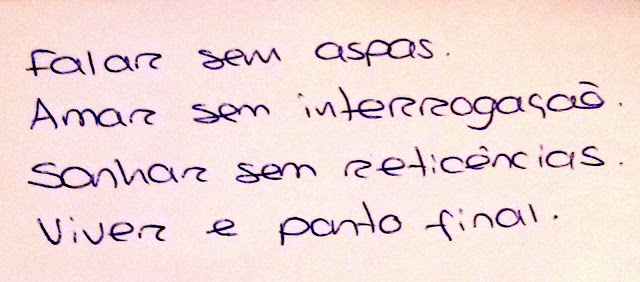 Falar sem aspas.
Amar sem interrogação.
Sonhar sem reticências.
Viver e ponto final.